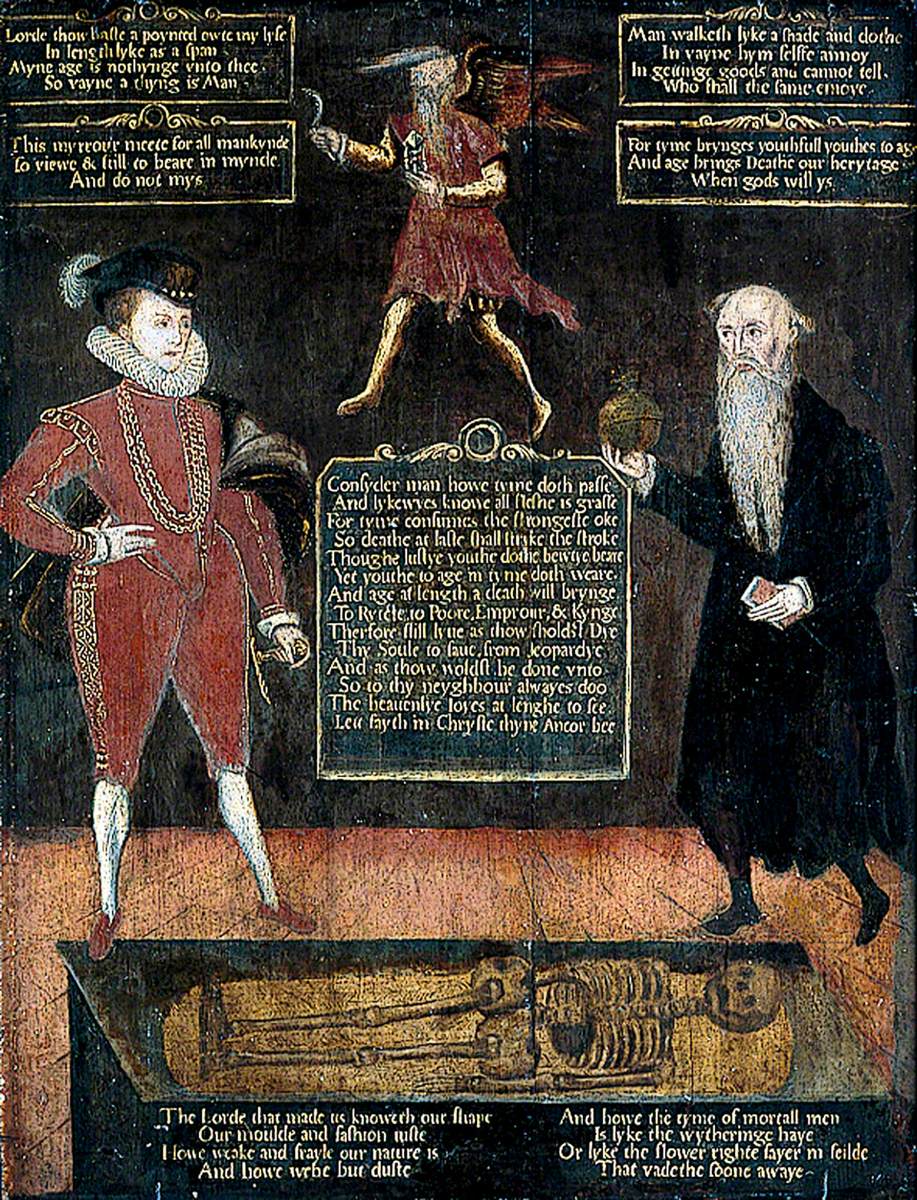 Lorde thow haste a poynted owte my lyfe
In length lyke as a span
Myne age is nothynge vnto thee
So vayne a thyng is Man
This myrrour meete for all mankynde
To viewe & still to beare in mynde
And do not mys
Man walketh lyke a shade and dothe
In vayne hym selffe annoy
In gettinge goods and cannot tell
Who shall the same enioye
For tyme brynges youthfull youthes to age
And age brings Deathe our herytage
When gods will ys
Consyder man howe tyme doth passe
And lykewyes knowe all fleshe is grasse
For tyme consumes the strongeste oke
So deathe at laste shall stryke the stroke
Thoughe lustye youthe dothe bewtye beare
Yet youthe to age in tyme doth weare
And age at length a death will brynge
To Rytche, to Poore, Emprour, & Kynge
Therfore still lyue as thow sholdst Dye
Thy Soule to saue, from Jeopardye
And as thow woldst be done vnto
So to thy neyghbour alwayes doo
The heauenlye Ioyes at lenghe to see
Lett fayth in Chryste thyne Ancor bee
The Lorde that made us knoweth our shape
Our moulde and fashion iuste
Howe weake and frayle our nature is
And howe webe but duste
And howe the tyme of mortall men
Is lyke the wytheringe haye
Or lyke the flower righte fayer in feilde
That vadethe soone awaye